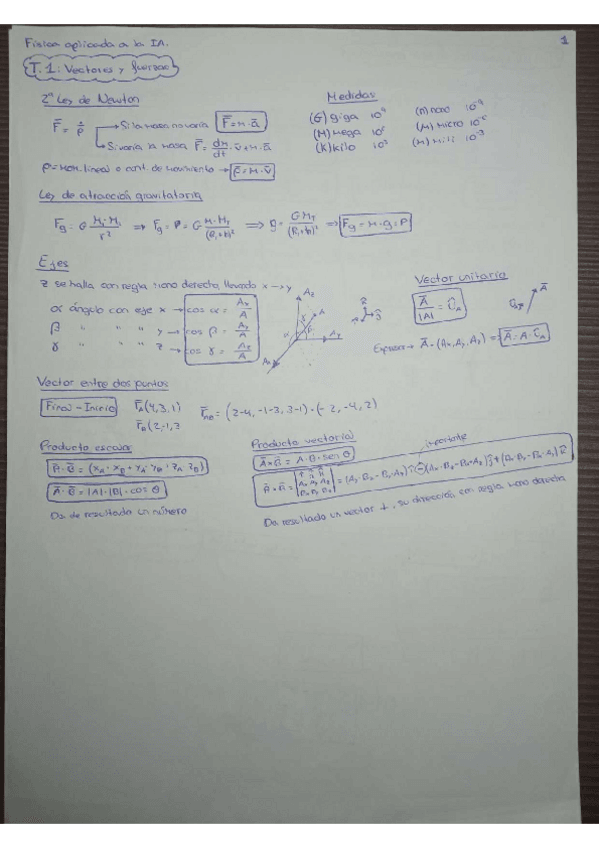 Física aplicada a la IA. 1
T.1: Vectores y fuerzas
2ª Ley de Newton
F̄ = ṗ
→ Si la masa no varía F̄ = m·ā
→ Si varía la masa F̄ = dm/dt · v̄ + m·ā
p = mom. lineal o cant. de movimiento → p̄ = m·v̄
Medidas
(G) giga 10⁹ (n) nano 10⁻⁹
(M) mega 10⁶ (μ) micro 10⁻⁶
(K) kilo 10³ (m) mili 10⁻³
Ley de atracción gravitatoria
⇒ Fg = m·g = P
Ejes
z se halla con regla mano derecha, llevando x → y
α ángulo con eje x → cos α =
β " " " y → cos β =
γ " " " z → cos γ =
Az
A
Ay
Ax
Vector unitario
Ā
Ā/|A| = ûA
Expresar → Ā = (Ax, Ay, Az) = Ā = A·ûA
Vector entre dos puntos
Final - Inicio r̄A (4,3,1)
r̄B (2,-1,3
= (2-4, -1-3, 3-1) = (-2, -4, 2)
Producto escalar
Ā·B̄ = (XA·XB + YA·YB + ZA·ZB)
Ā·B̄ = |A|·|B|·cos θ
Da de resultado un número
Producto vectorial
ĀxB̄ = A·B·sen θ
importante
Da resultado un vector ⊥, su dirección con regla mano derecha